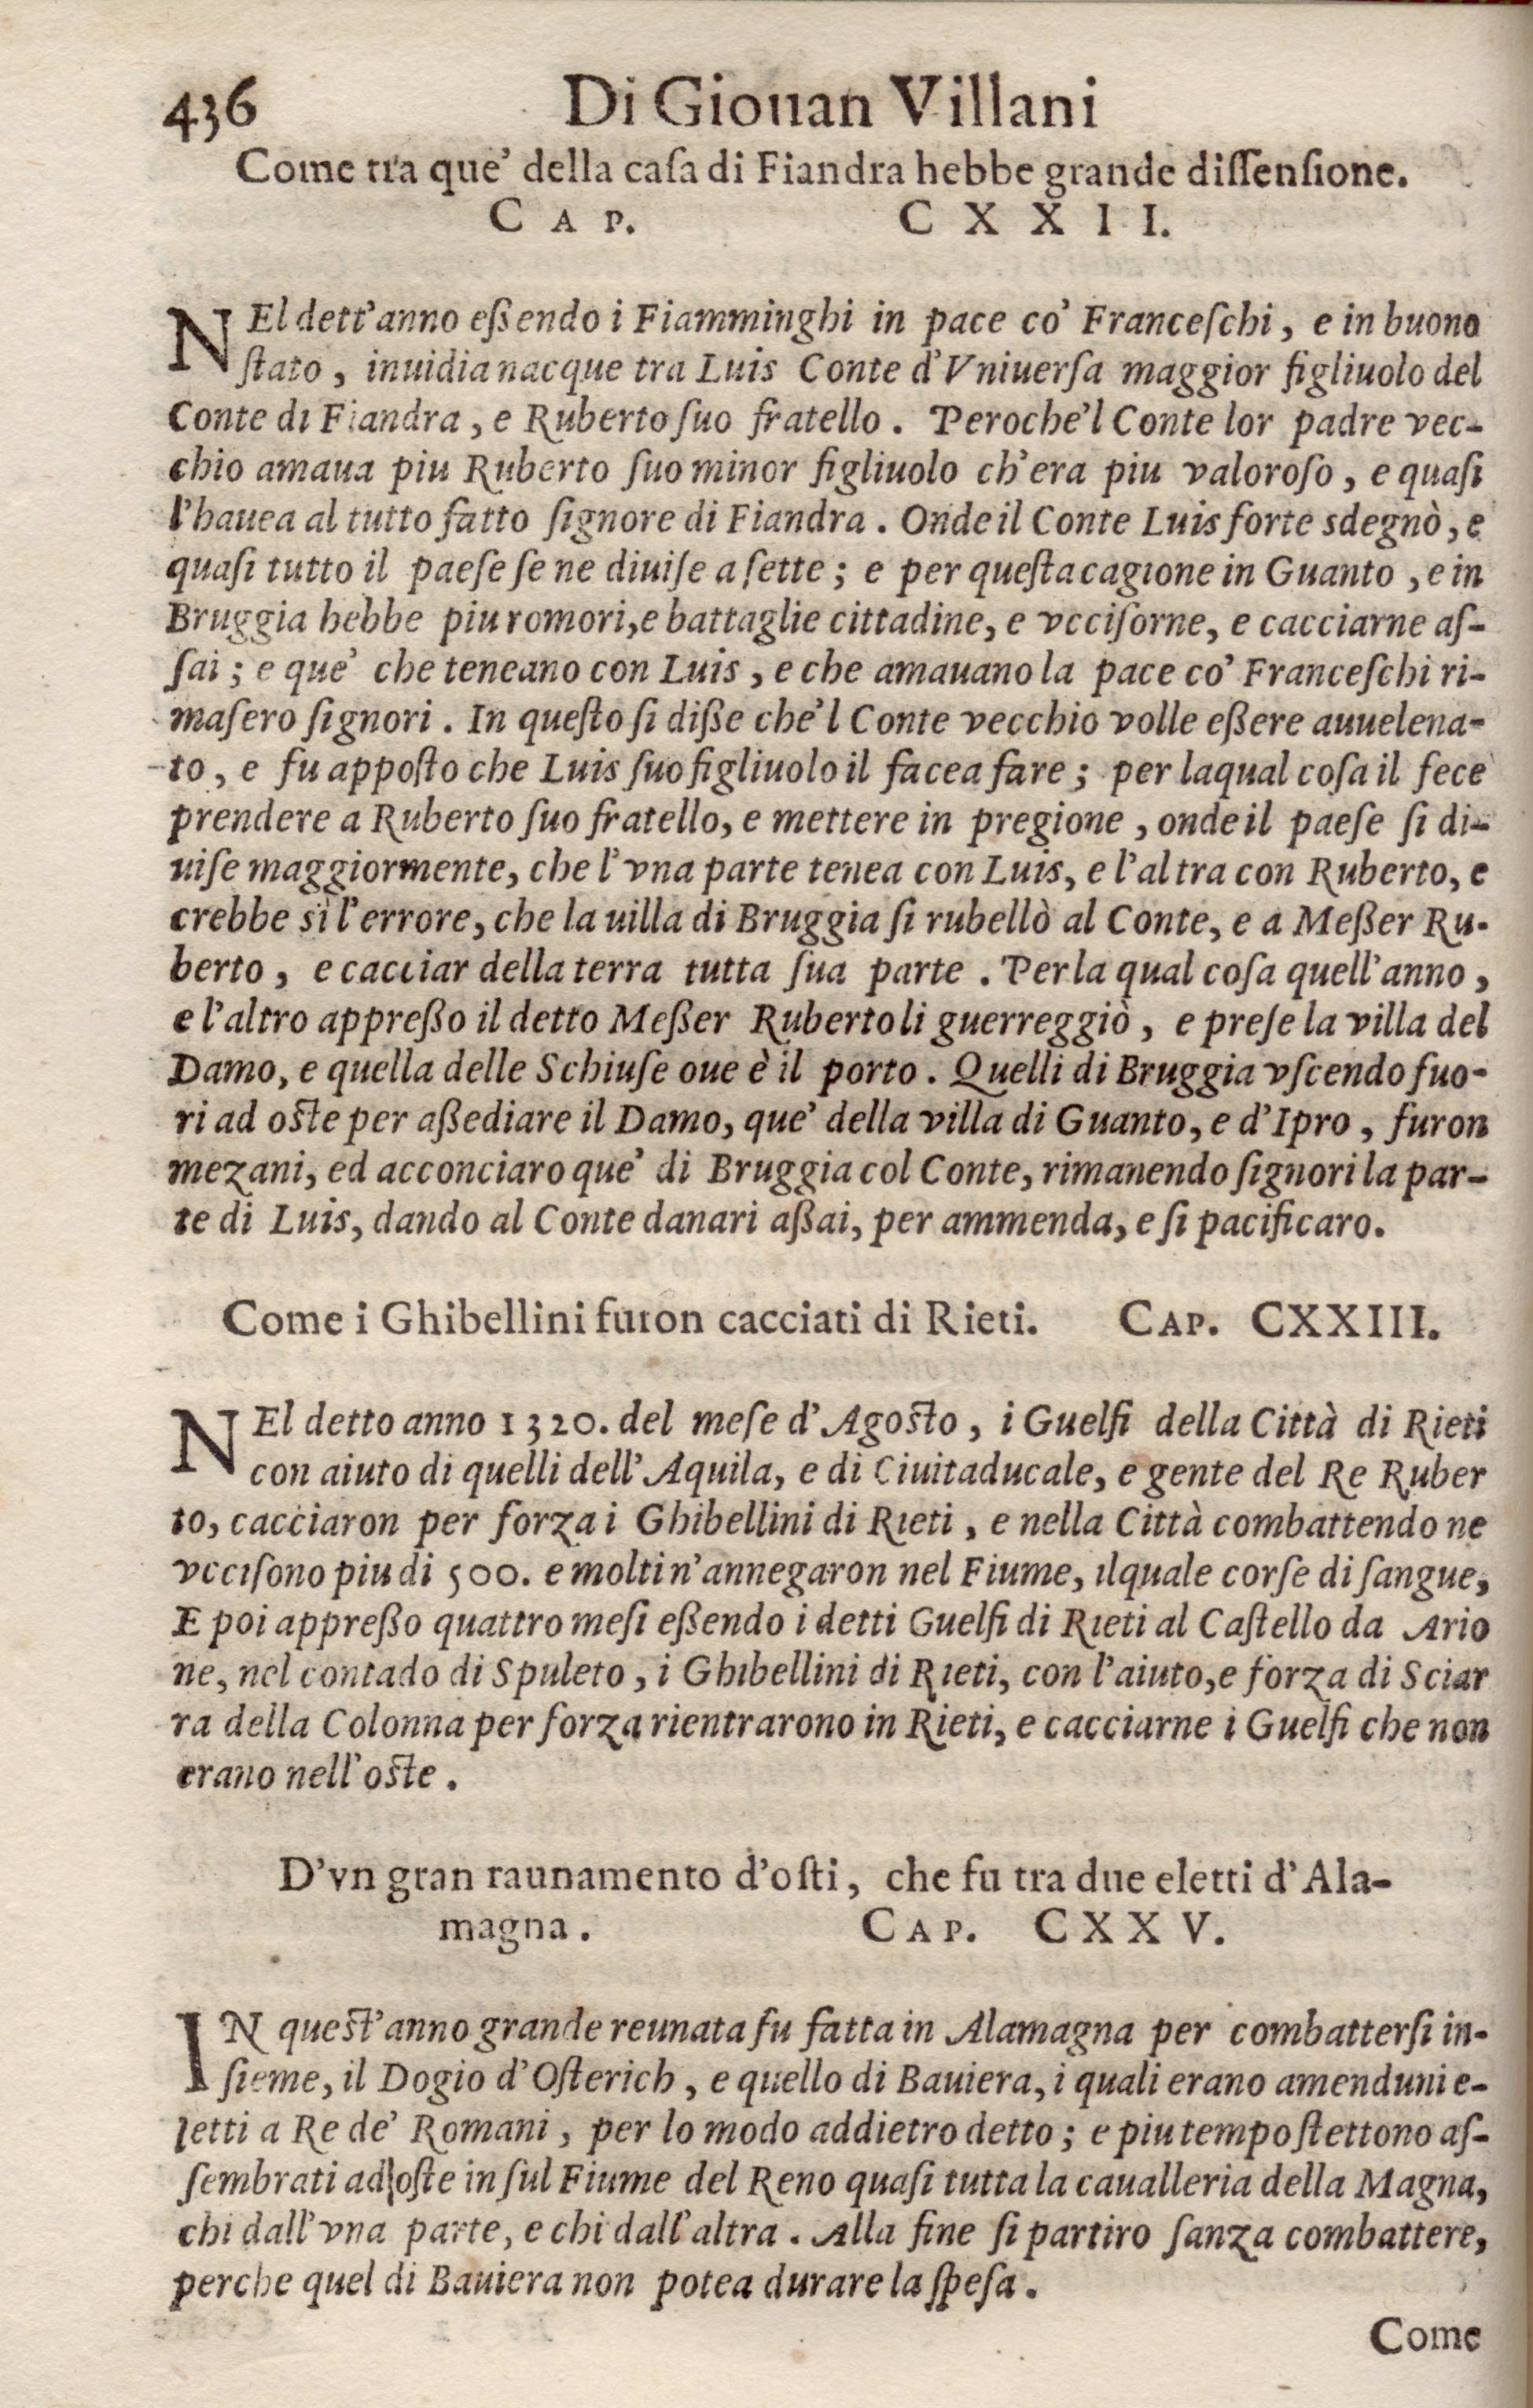 436 Di Giouan Villani
Come tra que' della caſa di Fiandra hebbe grande diſſenſione.
CAP. CXXII.
NEl dett'anno eßendo i Fiamminghi in pace co' Franceſchi, e in buono
ſtato, inuidia nacque tra Luis Conte d'Vniuerſa maggior figliuolo del
Conte di Fiandra, e Ruberto ſuo fratello. Peroche'l Conte lor padre vec-
chio amaua piu Ruberto ſuo minor figliuolo ch'era piu valoroſo, e quaſi
l'hauea al tutto fatto ſignore di Fiandra. Onde il Conte Luis forte sdegnò, e
quaſi tutto il paeſe ſe ne diuiſe a ſette; e per queſta cagione in Guanto, e in
Bruggia hebbe piu romori, e battaglie cittadine, e vcciſorne, e cacciarne aſ-
ſai; e que' che teneano con Luis, e che amauano la pace co' Franceſchi ri-
maſero ſignori. In queſto ſi diße che'l Conte vecchio volle eßere auuelena-
to, e fu appoſto che Luis ſuo figliuolo il facea fare; per laqual coſa il fece
prendere a Ruberto ſuo fratello, e mettere in pregione, onde il paeſe ſi di-
uiſe maggiormente, che l'vna parte tenea con Luis, e l'altra con Ruberto, e
crebbe sì l'errore, che la uilla di Bruggia ſi rubellò al Conte, e a Meßer Ru-
berto, e cacciar della terra tutta ſua parte. Per la qual coſa quell'anno,
e l'altro appreßo il detto Meßer Ruberto li guerreggiò, e preſe la villa del
Damo, e quella delle Schiuſe oue è il porto. Quelli di Bruggia vſcendo fuo-
ri ad oſte per aßediare il Damo, que' della villa di Guanto, e d'Ipro, furon
mezani, ed acconciaro que' di Bruggia col Conte, rimanendo ſignori la par-
te di Luis, dando al Conte danari aßai, per ammenda, e ſi pacificaro.
Come i Ghibellini furon cacciati di Rieti. CAP. CXXIII.
NEl detto anno 1320. del meſe d'Agoſto, i Guelfi della Città di Rieti
con aiuto di quelli dell'Aquila, e di Ciuitaducale, e gente del Re Ruber
to, cacciaron per forza i Ghibellini di Rieti, e nella Città combattendo ne
vcciſono piu di 500. e molti n'annegaron nel Fiume, ilquale corſe di ſangue,
E poi appreßo quattro meſi eßendo i detti Guelfi di Rieti al Caſtello da Ario
ne, nel contado di Spuleto, i Ghibellini di Rieti, con l'aiuto, e forza di Sciar
ra della Colonna per forza rientrarono in Rieti, e cacciarne i Guelfi che non
erano nell'oſte.
D'vn gran raunamento d'oſti, che fu tra due eletti d'Ala-
magna. CAP. CXXV.
IN queſt'anno grande reunata fu fatta in Alamagna per combatterſi in-
ſieme, il Dogio d'Oſterich, e quello di Bauiera, i quali erano amenduni e-
letti a Re de' Romani, per lo modo addietro detto; e piu tempo ſtettono aſ-
ſembrati ad oſte in ſul Fiume del Reno quaſi tutta la caualleria della Magna,
chi dall'vna parte, e chi dall'altra. Alla fine ſi partiro ſanza combattere,
perche quel di Bauiera non potea durare la ſpeſa.
Come